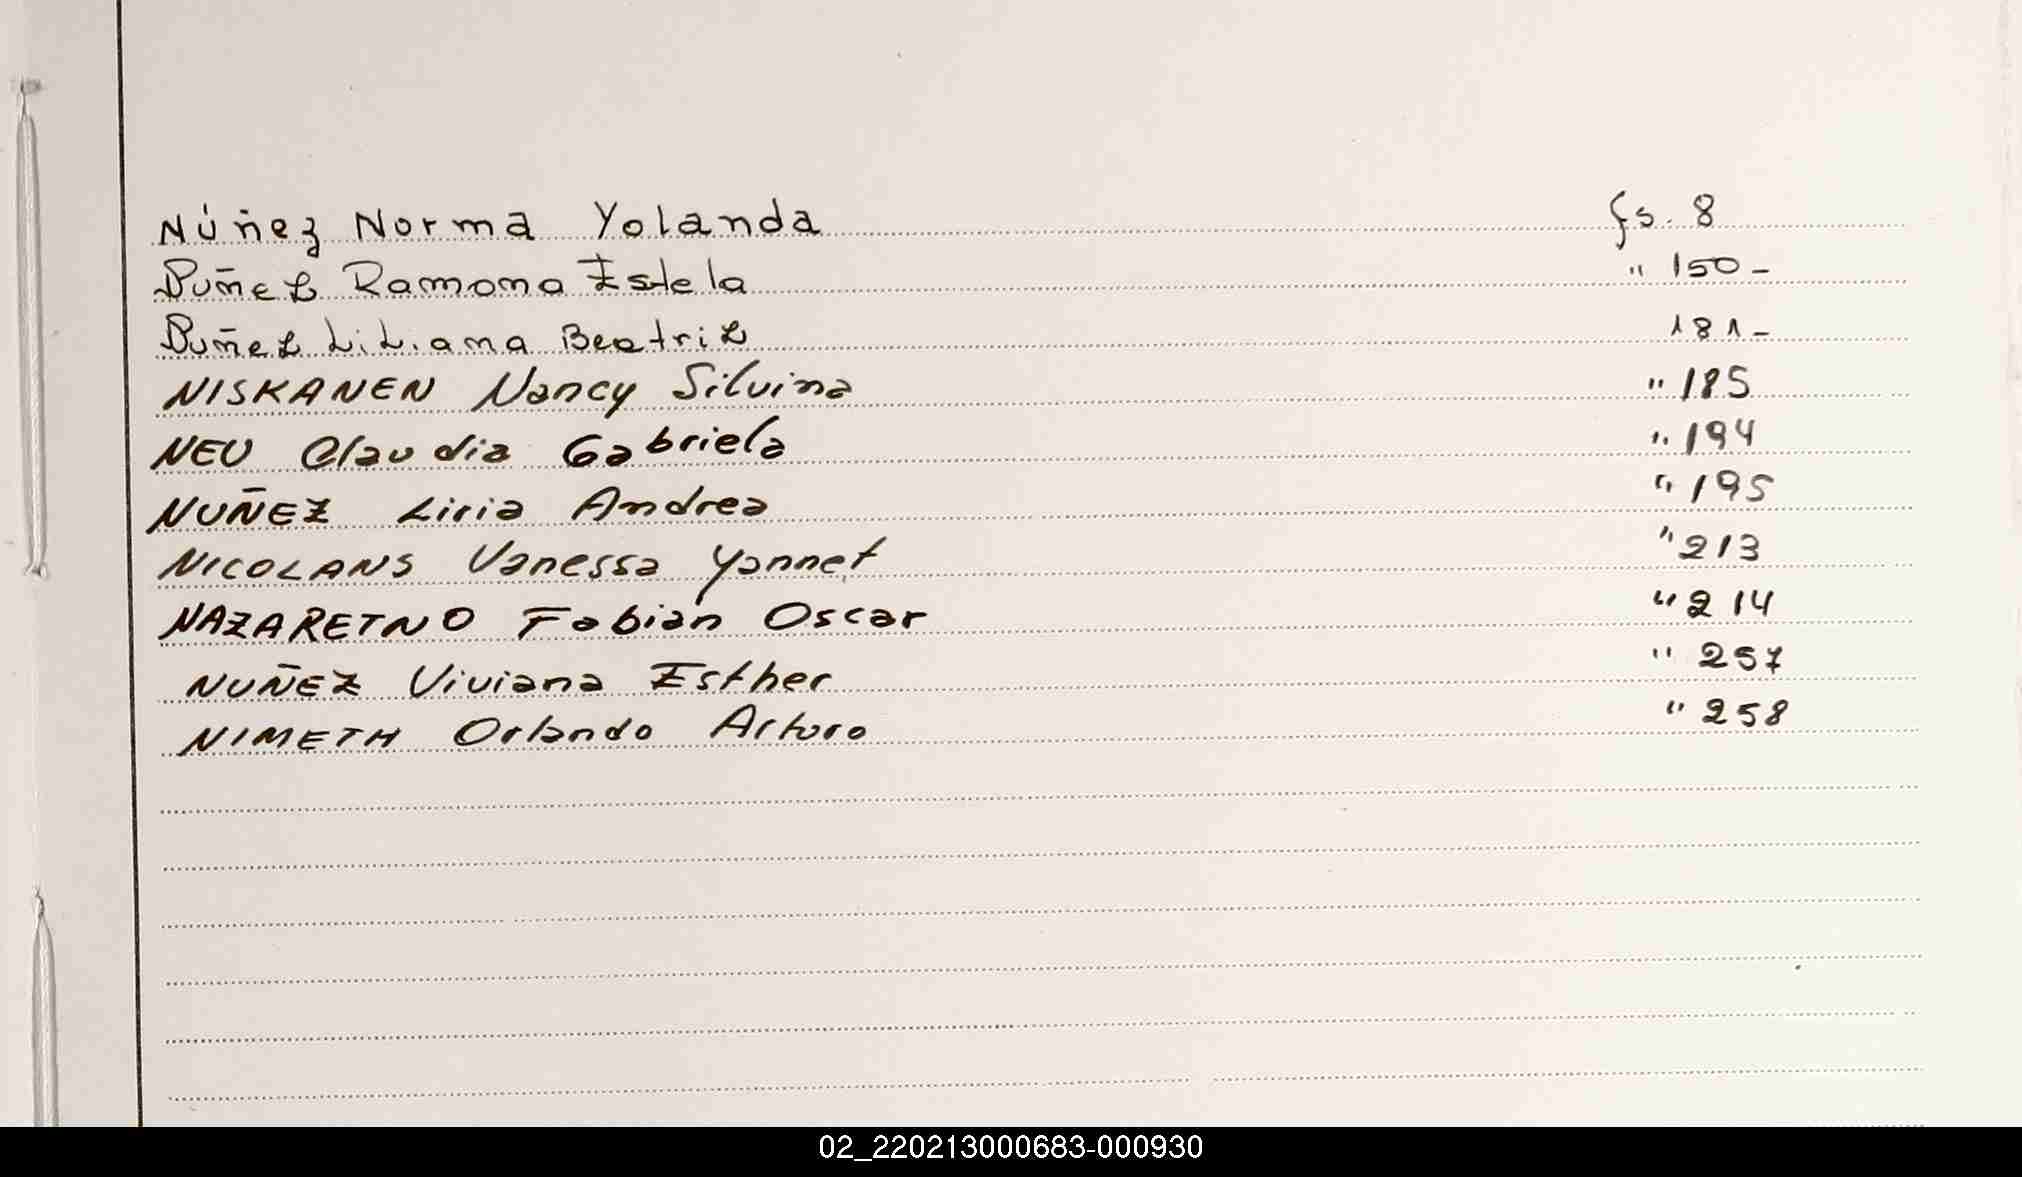 Núñez Norma Yolanda fs. 8
Nuñez Ramona Estela " 150-
Nuñez Liliana Beatriz 181-
NISKANEN Nancy Silvina " 185
NEU Claudia Gabriela " 194
NUÑEZ Liria Andrea " 195
NICOLANS Vanessa Yannet " 213
NAZARETNO Fabian Oscar " 214
NUÑEZ Viviana Esther " 257
NIMETH Orlando Arturo " 258
02_220213000683-000930